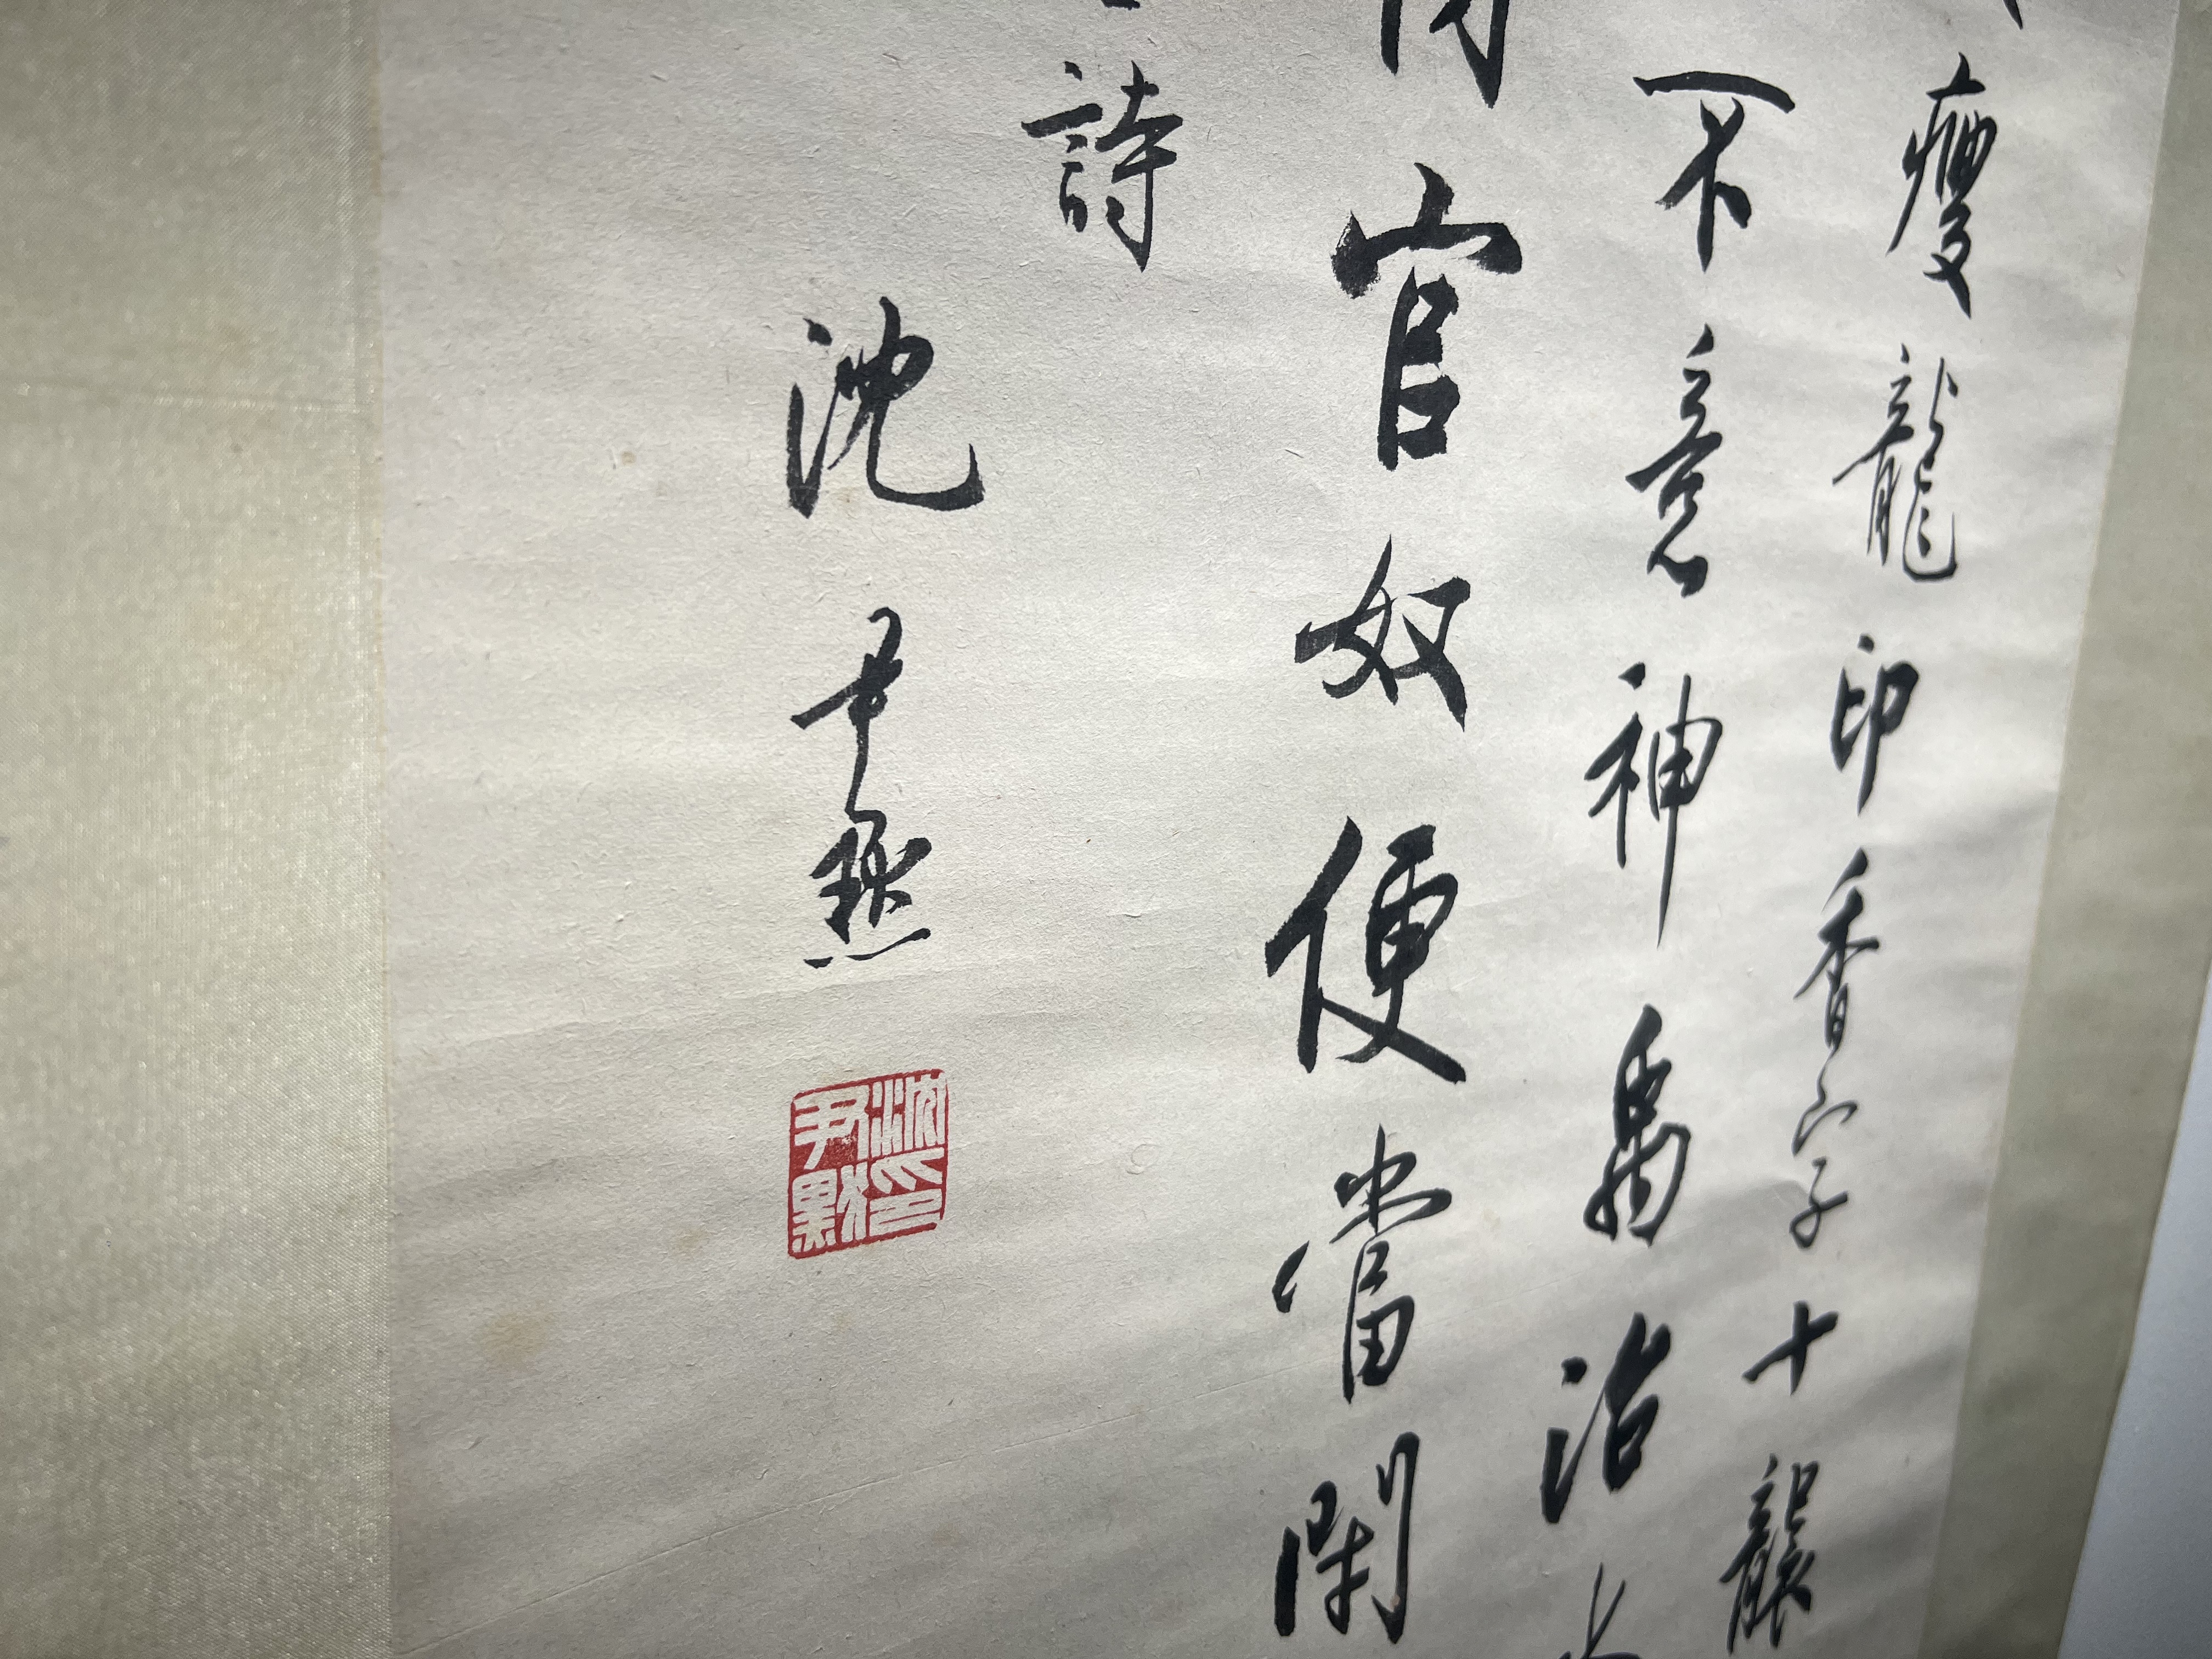 瘦龍印香字十襲
不意神禹治
官奴便當閑
詩
沈尹默
沈尹默印